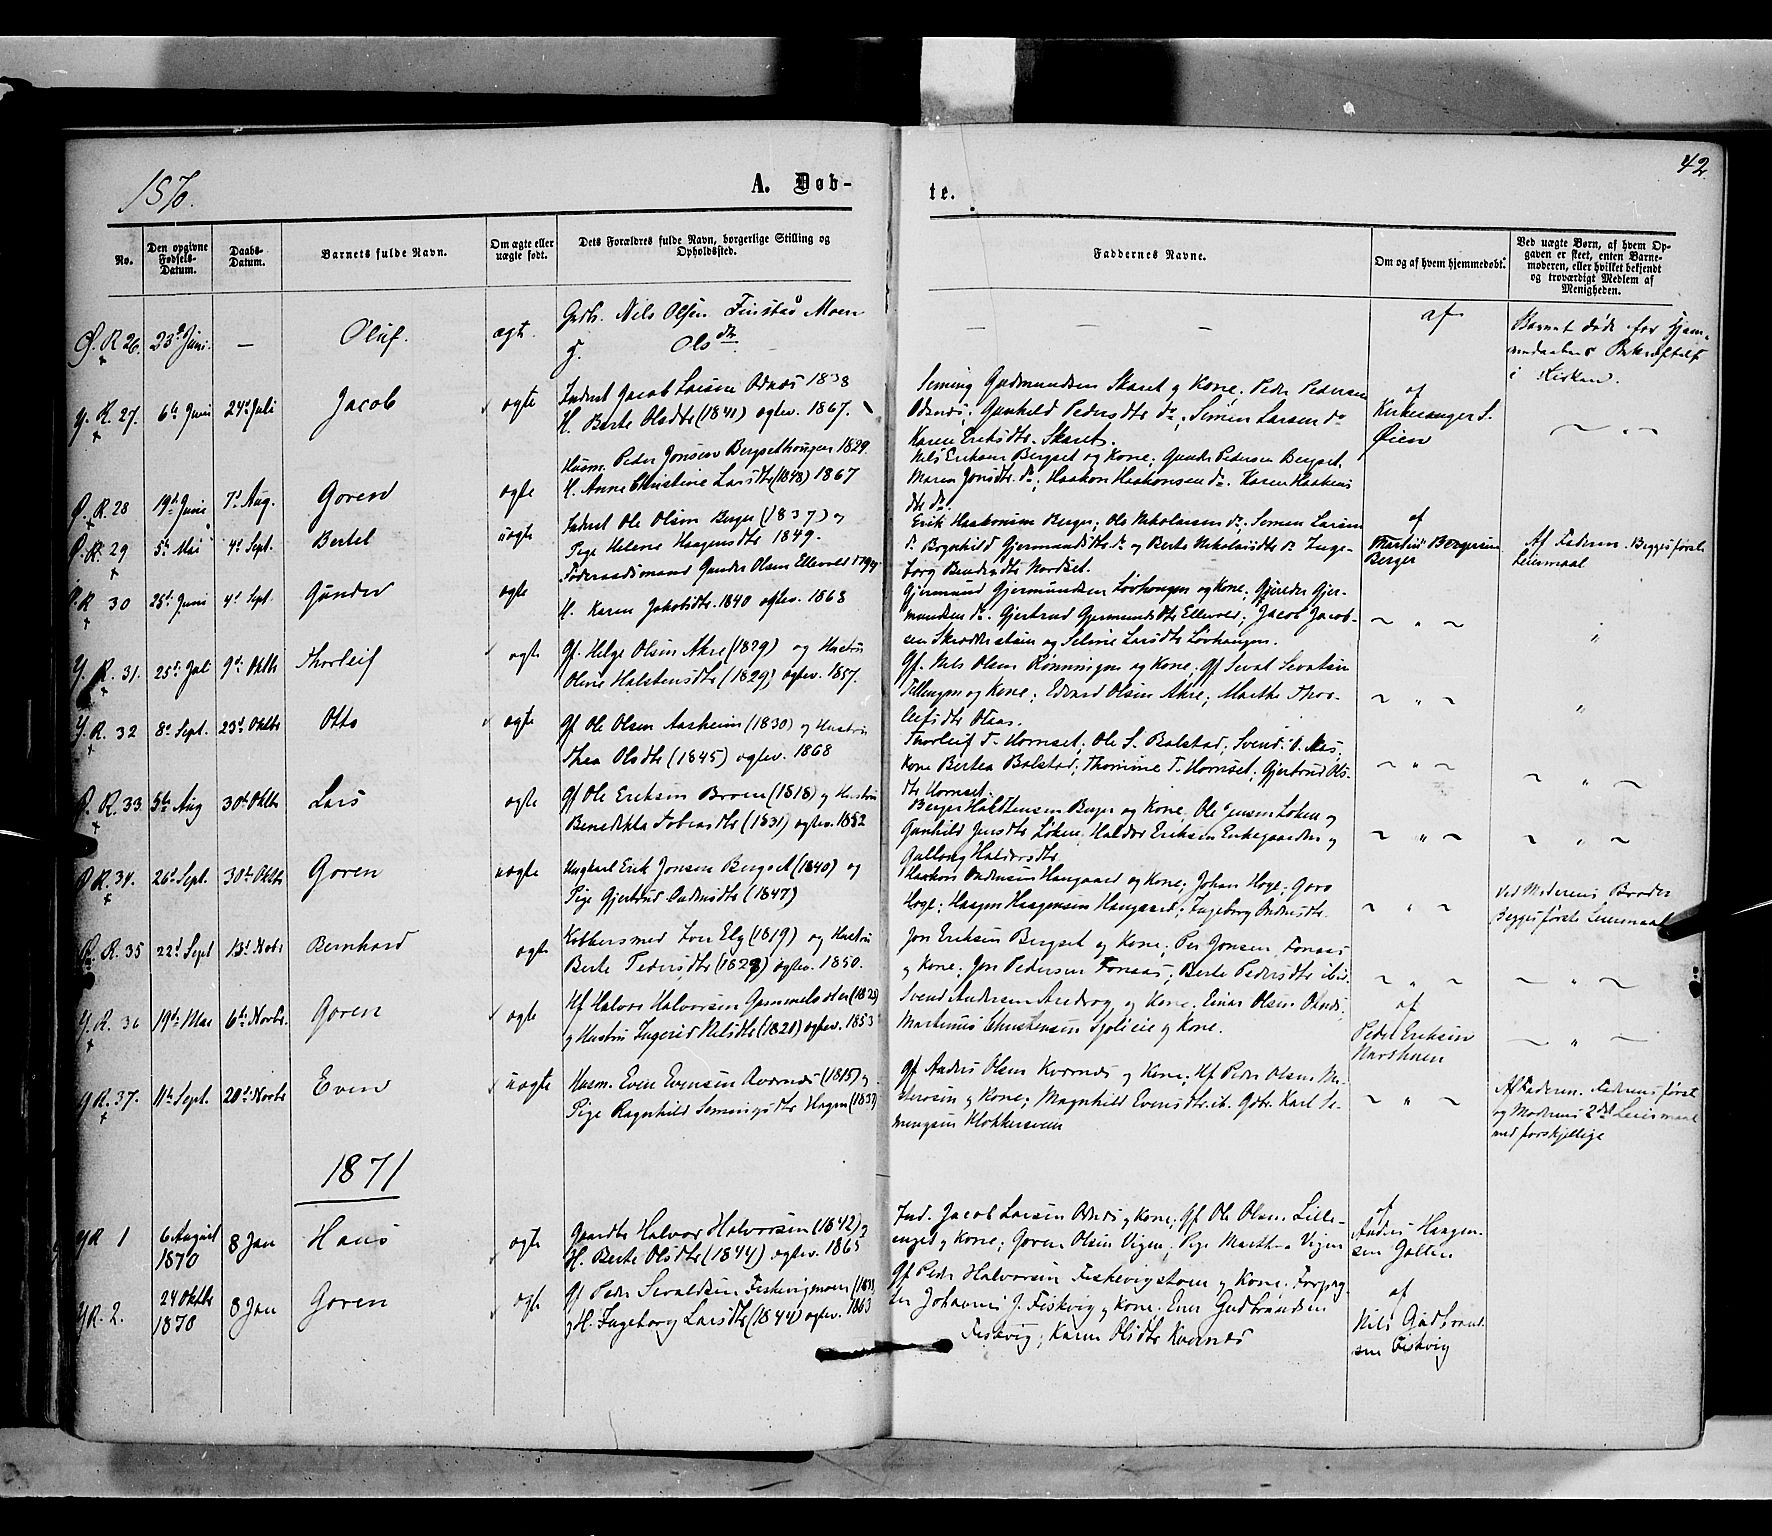 42
187
A. Døb-
te.
No.
Den opgivne Fødsels-Datum.
Daabs-Datum.
Barnets fulde Navn.
Om ægte eller uægte født.
Dets Forældres fulde Navn, borgerlige Stilling og Opholdssted.
Faddernes Navne.
Om og af hvem hjemmedøbt.
Ved uægte Børn, af hvem Opgaven er skeet, enten Barnemoderen, eller hvilket bekjendt og troværdigt Medlem af Menigheden.
Ø. R 26. 23de Juni. — Oluf. ægte. Nils Olsen Finstad Moen
Ols dtr.
— — —
af
Barnet døde før Hjem-
medaabens Bekræftelse
i Kirken.
Y. R. 27. 6te Juni 24d Juli Jacob ægte Inderst Jacob Larsen Odnæs 1838
H. Berte Olsdtr (1841) ægtev. 1867.
Seming Gudmundsen Skaret og Kone. Peder Pedersen
Odnæs; Gunhild Pedersdtr do; Simen Larsen do
Karen Eriksdtr. Skaret.
af
S.
Øien
Ø. R. 28 19de Juni 7d Aug. Goren ægte Husm. Peder Jonsen Bergsethaugen 1829.
H. Anne Christine Larsdtr (1848) 1867
Nils Eriksen Bergset og Kone; Gunder Pedersen Bergset.
Maren Jonsdtr. do; Haakon Haakonsen do. Karen Haakens
dtr do
Ø. R. 29 5te Mai 4d Sept. Bertel uægte Inderst Ole Olsen Berger (1837) og
Pige Helene Haagensdtr 1849.
Erik Haakonsen Berger; Ole Nikolaisen do, Semen Larsen
do Bergerhild Gjermundsdtr do og Berte Nikolaisdtr do Inge-
borg Bendixdtr Nordset.
af
Berger
Af Faderen. Begges første
Leiermaal
Ø. R 30 25d Juni 4d Sept. Gunder ægte Føderaadsmand Gunder Olsen Ellevold 1794
H. Karen Jakobsdtr. 1840 ægtev. 1868
Gjermund Gjermundsen Løvhaugen og Kone; Gjerder Gjer-
mundsen do. Gjertrud Gjermundsdtr Ellevold; Jacob Jacob-
sen og Seline Larsdtr Løvhaugen.
~ " ~
"
Y. R. 31. 25d Juli 9d Oktbr Thorleif ægte Gf. Helge Olsen Akre (1829) og Hustru
Oline Halstensdtr (1829) ægtev. 1857.
Gf. Nils Olsen Rønningen og Kone. Gf Sivat Sivatsen
Tillengen og Kone; Edvard Olsen Akre; Marthe Thor-
leifsdtr Olaas.
~ " ~
"
Y. R. 32 8de Sept. 23d Oktbr Otto ægte Gf Ole Olsen Aasheim (1830) og Hustru
Thea Olsdtr (1845) ægtev. 1868
Thorleif T. Hornset; Ole S. Bolstad; Svend O. Næs;
Kone Bertea Bolstad; Thomine T. Hornset; Gjertrud Ols-
dtr Hornset.
~ " ~
~ " ~
Ø. R. 33 5te Aug 30te Oktbr Lars ægte Gf Ole Eriksen Broen (1818) og Hustru
Benedikta Tobiasdtr (1831) ægtev. 1852
Berger Halstensen Berger og Kone. Ole Jensen Løken og
Gunhild Jensdtr Løken; Haldor Eriksen Enkegaarden og
Gullaug Haldorsdtr
~ " ~
~ " ~
Ø R. 34. 26d Sept. 30te Oktbr Goren uægte Ungkarl Erik Jonsen Bergset (1840) og
Pige Gjertrud Endresdtr (1847)
Haakon Endresen Haugaard og Kone; Johan Hoge; Goro
Hoge; Haagen Haagensen Haugaard; Ingeborg Endresdtr.
~ " ~
Ved Moderens Broder
Begges første Leiermaal
Ø. R. 35 22d Sept 13d Novbr Bernhard ægte Kobbersmed Iver Elg (1819) og Hustru
Berte Pedersdtr (1828) ægtev. 1850.
Jon Eriksen Bergset og Kone; Per Jonsen Fonaas
og Kone; Jon Pedersen Fonaas; Berte Pedersdtr ibid.
~ " ~
~ " ~
Y. R. 36 19de Mai 6te Novbr. Goren ægte Hf Halvor Halvorsen Gammelsæter (1829)
og Hustru Ingerid Nilsdtr (1828) ægtev. 1853
Svend Andersen og Kone. Einar Olsen Odnæs
Martinus Christensen Sjølieie og Kone.
af
Peder Eriksen
~ " ~
Y R. 37. 11te Sept. 20de Novbr Even uægte Husm. Even Evensen Kværnæs (1815) og
Pige Ragnhild Semingsdtr Hagen (1837)
Gf Anders Olsen Kværnæs og Kone; Hf Peder Olsen
og Kone; Magnhild Evensdtr ib. Gbr. Karl Se-
mingsen Klokkersveen
~ " ~
Af Faderen. Faderens første
og Moderens 2det Leiermaal
med forskjellige
1871
YR 1 6 August 1870 8 Jan Hans ægte Gaardbr Halvor Halvorsen (1842) og
H. Berte Olsdtr (1844) ægtev. 1865
Ind. Jacob Larsen Odnæs og Kone; Gf Ole Olsen Lille-
enget og Kone; Goren Olsen Vigen; Pige Marthea Vigen
af
Anders Haagen-
sen Galten
YR. 2. 24 Oktbr 1870 8 Jan Goren ægte Gf Peder Sivaldsen Fiskvigmoen (1838)
og H. Ingeborg Larsdtr (1844) ægtev. 1863
Gf Peder Halvorsen Fiskevigstøen og Kone. Forpag-
ter Johannes J. Fiskvig og Kone. Ener Gudbrandsen
Fiskvig; Karen Olsdtr Kværnæs
af
Nils Gudbrand-
sen Fiskvig